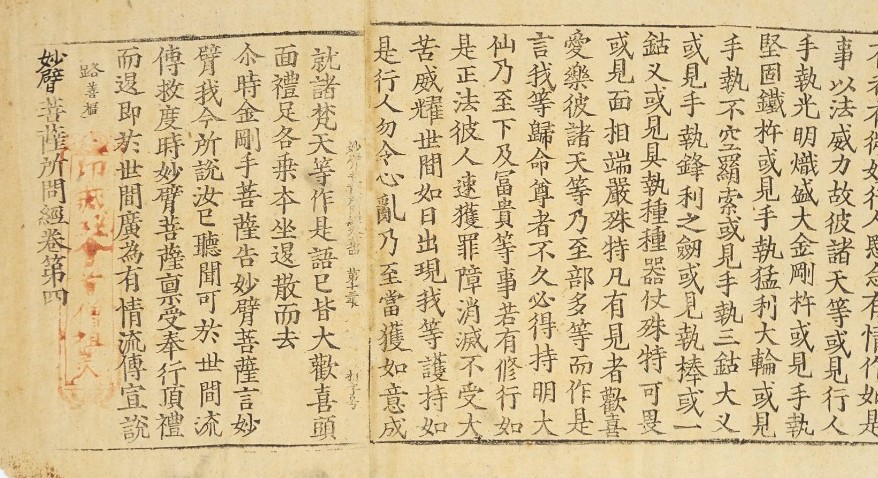 事以法威力故彼諸天等或見行人
手執光明熾盛大金剛杵或見手執
堅固鐵杵或見手執猛利大輪或見
手執不空羂索或見手執三鈷大乂
或見手執鋒利之劒或見執棒或一
鈷乂或見具執種種器仗殊特可畏
或見面相端嚴殊特凡有見者歡喜
愛樂彼諸天等乃至部多等而作是
言我等歸命尊者不久必得持明大
仙乃至下及冨貴等事若有修行如
是正法彼人速獲罪障消滅不受大
苦威耀世間如日出現我等護持如
是行人勿令心亂乃至當獲如意成
就諸梵天等作是語已皆大歡喜頭
面禮足各乗本坐還散而去
尒時金剛手菩薩告妙臂菩薩言妙
臂我今所說汝已聽聞可於世間流
傳救度時妙臂菩薩禀受奉行頂禮
而退即於世間廣為有情流傳宣說
路善
妙臂菩薩所問經卷第四